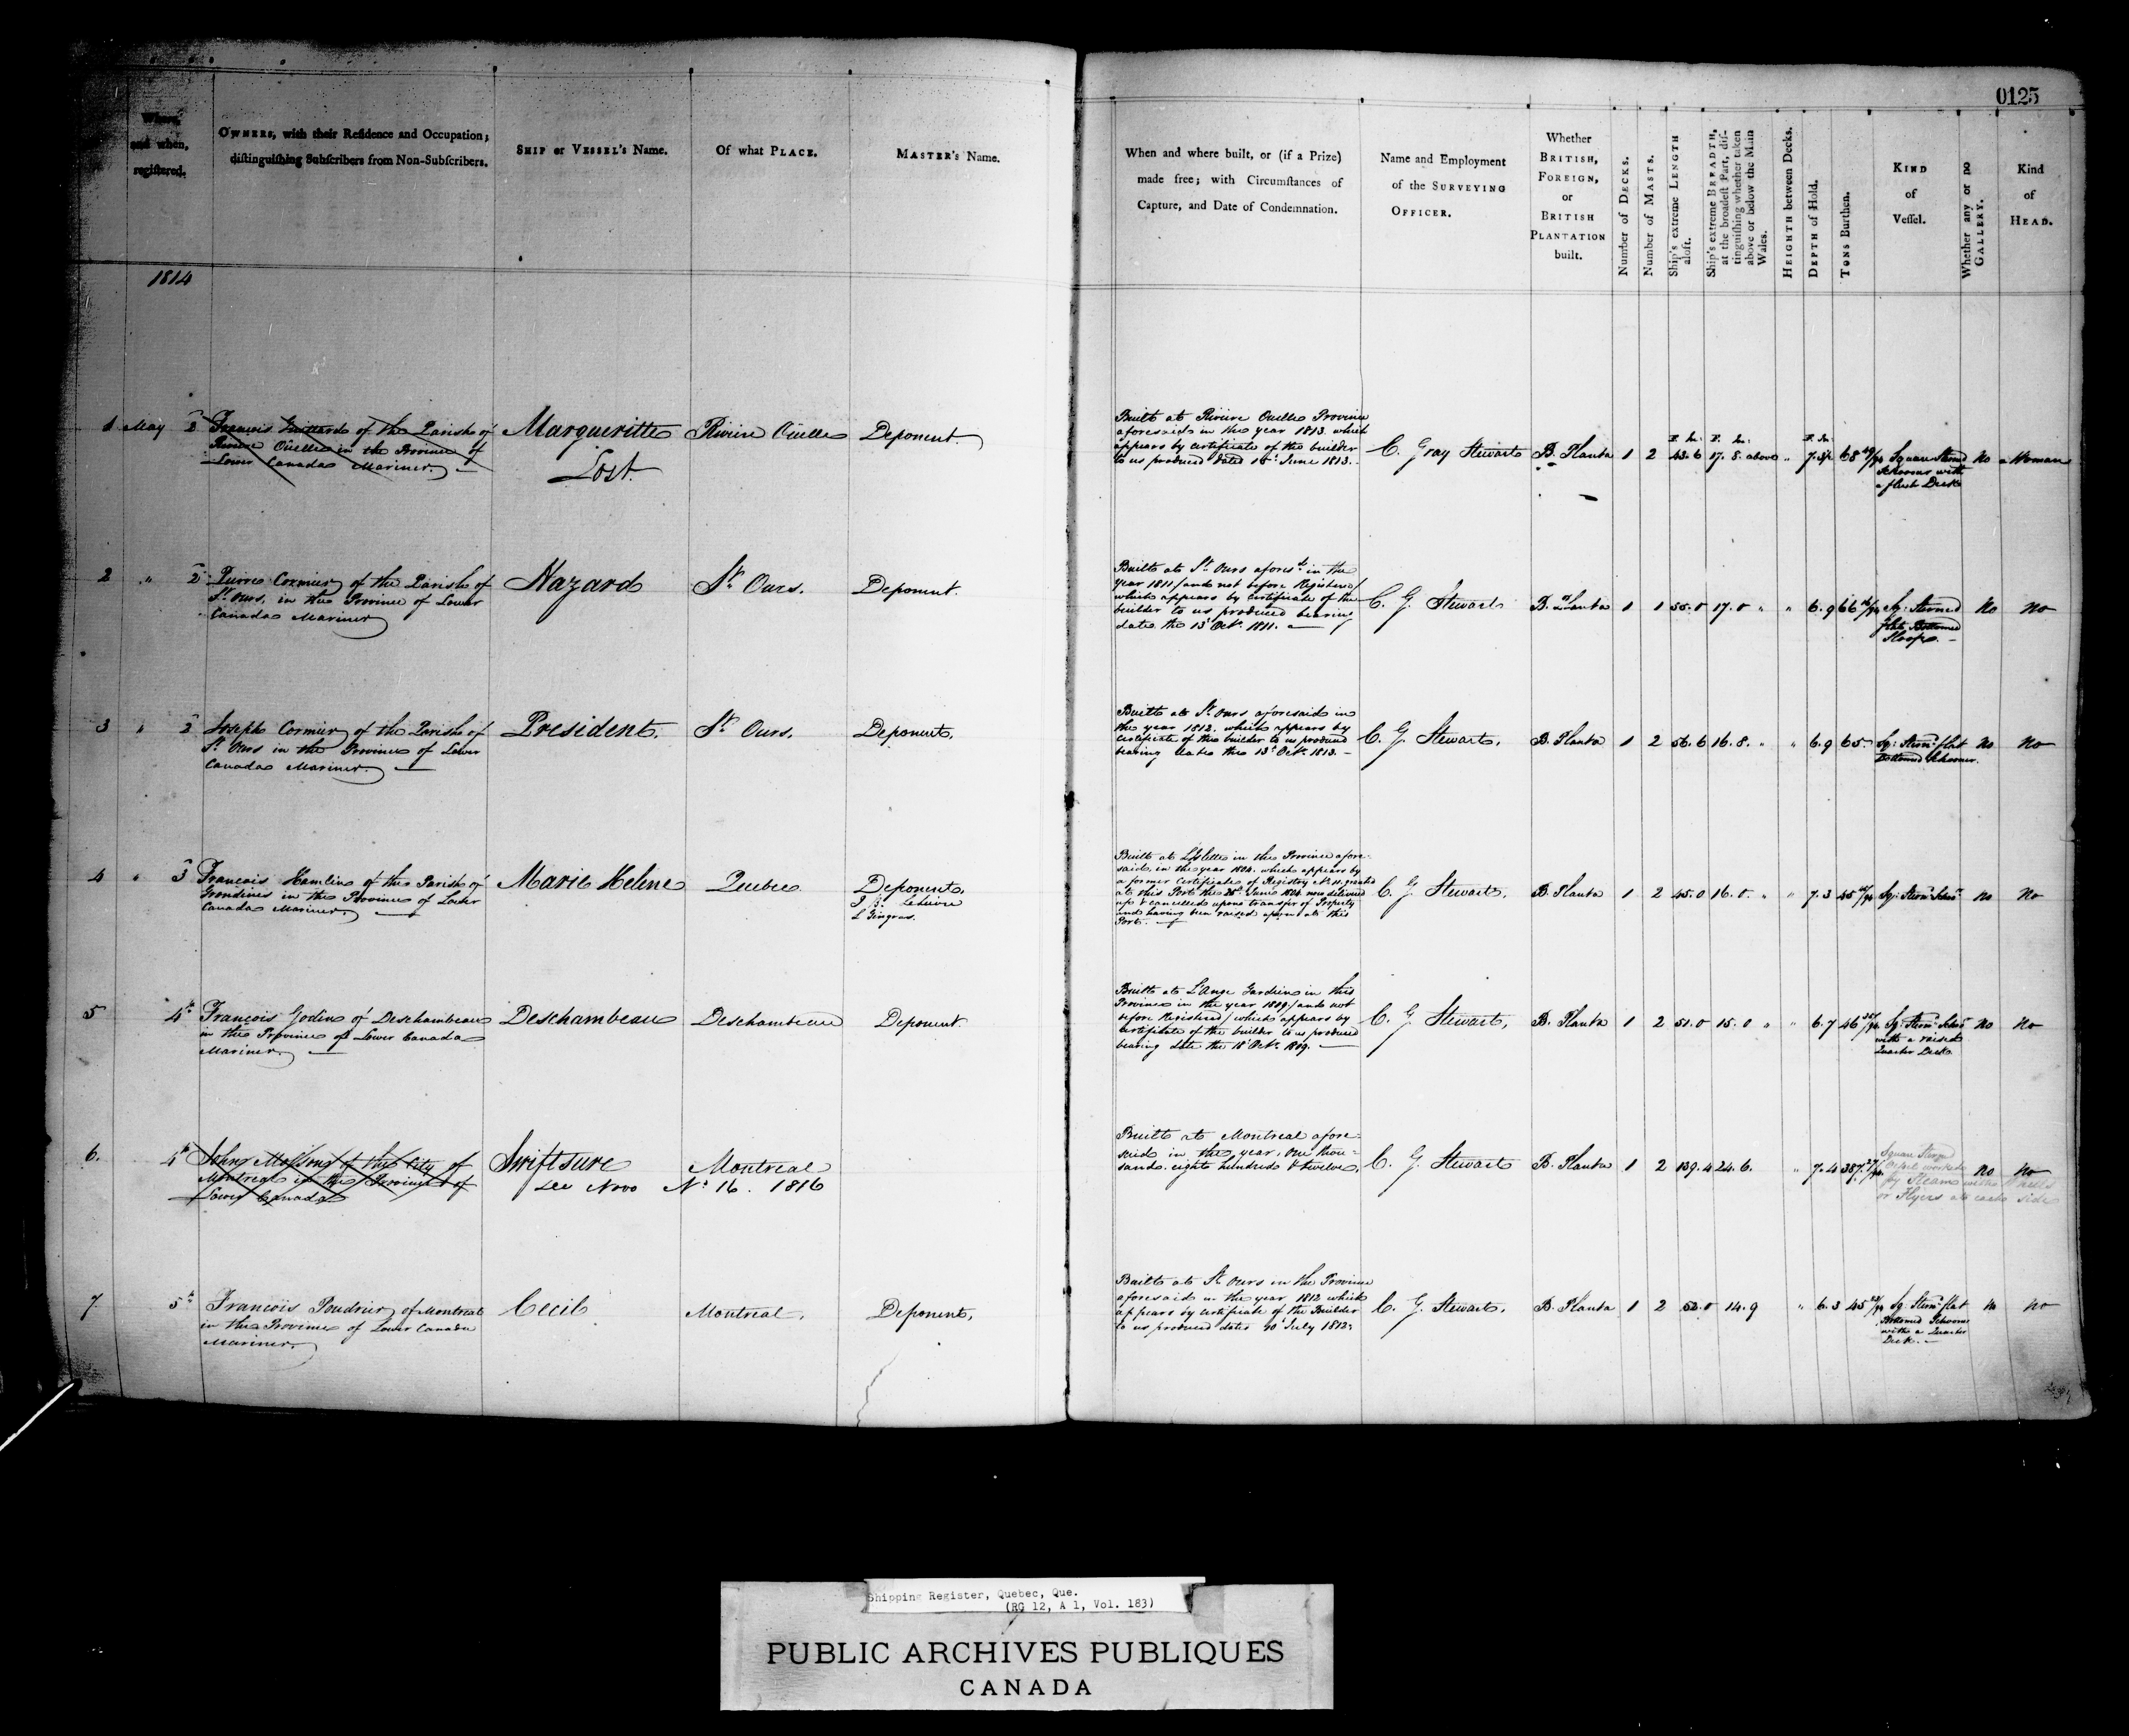 0125
Where,
and when,
registered.
OWNERS, with their Residence and Occupation;
distinguishing Subscribers from Non-Subscribers.
SHIP or VESSEL's Name.
Of what PLACE.
MASTER's Name.
When and where built, or (if a Prize)
made free; with Circumstances of
Capture, and Date of Condemnation.
Name and Employment
of the SURVEYING
OFFICER.
Whether
BRITISH,
FOREIGN,
or
BRITISH
PLANTATION
built.
Number of DECKS.
Number of MASTS.
Ship's extreme LENGTH
aloft.
Ship's extreme BREADTH,
at the broadest Part, dis-
tinguishing whether taken
above or below the Main
Wales.
HEIGHTH between Decks.
DEPTH of Hold.
TONS Burthen.
KIND
of
Vessel.
Whether any or no
GALLERY.
Kind
of
HEAD.
1814
1 May 2 François of the Parish of
Riviere Oüelle in the Province of
Lower Canada Mariner
Margueritte
Lost.
Riviere Oüelle
Deponent.
Built at Riviere Ouelle Province
aforesaid in the year 1813. which
appears by certificate of the builder
to us produced dated June 1813.
C. Gray Stewart
B. Planta 1 2
F. In. F. In. F. In.
6 17. 8. above " 7. 68 Square Sterned
Schooner with
a flush Deck
No a Woman
2 " 2 Pierre Cormier of the Parish of
St. Ours, in the Province of Lower
Canada Mariner
Hazard
St. Ours.
Deponent.
Built at St. Ours afores.d in the
year 1811 / and not before Registered /
which appears by certificate of the
builder to us produced bearing
date the 13 Oct. 1811.
C. G. Stewart
B. Planta 1 1 55. 0 17. 0 " " 6. 9 66 Sq: Sterned
flat Bottomed
Sloop.
No No
3 " 2 Joseph Cormier of the Parish of
St. Ours in the Province of Lower
Canada Mariner.
President.
St. Ours.
Deponent.
Built at St. Ours aforesaid in
the year 1812. which appears by
certificate of the builder to us produced
bearing date the 13 Oct. 1813.
C. G. Stewart.
B. Planta 1 2 56. 6 16. 8. " " 6. 9 65 Sq: Stern: flat
Bottomed Schooner.
No No
4 " 3 François Hamelin of the Parish of
Grondines in the Province of Lower
Canada Mariner.
Marie Helene
Quebec
Deponent.
J. B.
L. Gingras.
Built at L'Islette in the Province afore-
said, in the year 1804. which appears by
a former Certificate of Registry No. 11. granted
at this Port the June 1804 now delivered
up & cancelled upon transfer of Property
and having been raised upon at this
Port.
C. G. Stewart.
B. Planta 1 2 45. 0 16. 0. " " 7. 3 45 Sq: Stern: Schr.
No No
5 4th François Godin of Deschambeau
in the Province of Lower Canada
Mariner.
Deschambeau
Deschambeau
Deponent.
Built at L'Ange Gardien in this
Province in the year 1809 / and not
before Registered / which appears by
certificate of the builder to us produced
bearing date the 18 Oct. 1809.
C. G. Stewart.
B. Planta 1 2 51. 0 15. 0 " " 6. 7 46 Sq: Stern: Schr.
with a raised
Quarter Deck.
No No
6. 4th John Molson of the City of
Montreal in the Province of
Lower Canada
Swiftsure
Montreal
See Novo No. 16. 1816
Built at Montreal afore-
said in the year, one thou-
sand eight hundred & twelve.
C. G. Stewart
B. Planta 1 2 139. 4 24. 6. " 7. 4 387.
Square Stern
worked
by Steam with Wheels
or Flyers at each side
No No
7. 5th François Poudrier of Montreal
in the Province of Lower Canada
Mariner.
Cecil
Montreal.
Deponent.
Built at St. Ours in the Province
aforesaid in the year 1812 which
appears by certificate of the Builder
to us produced dated July 1812.
C. G. Stewart.
B. Planta 1 2 52. 0 14. 9 " 6. 3 45 Sq: Stern: flat
Bottomed Schooner
with a Quarter
Deck.
No No
Shipping Register, Quebec, Que.
(RG 12, A 1, Vol. 183)
PUBLIC ARCHIVES PUBLIQUES
CANADA